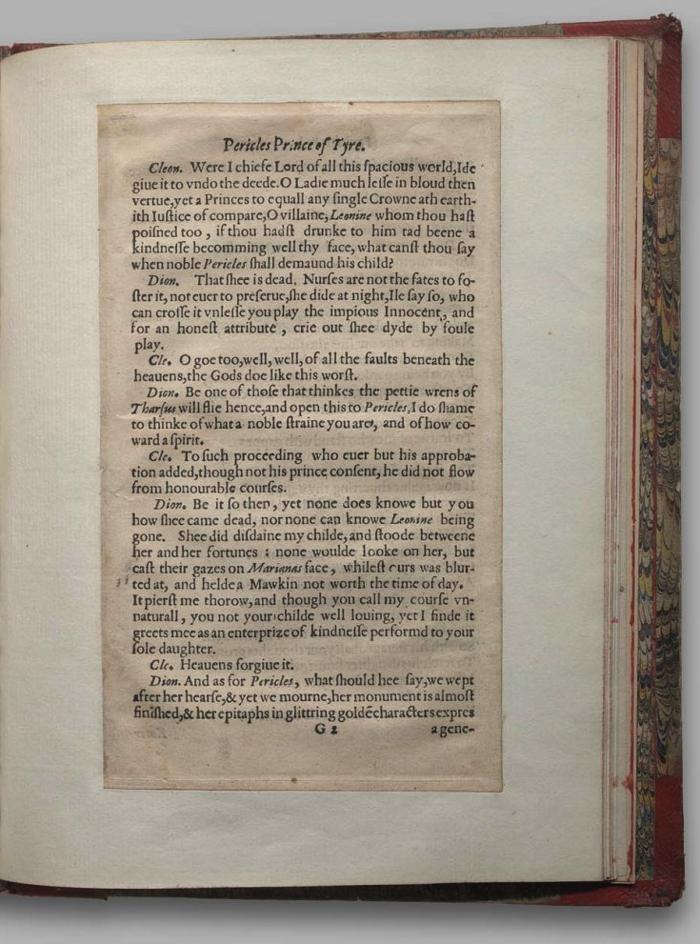 Pericles Prince of Tyre.
Cleon. Were I chiefe Lord of all this spacious world,Ide
giue it to vndo the deede.O Ladie much lesse in bloud then
vertue,yet a Princes to equall any single Crowne ath earth-
ith Iustice of compare,O villaine,Leonine whom thou hast
poisned too , if thou hadst drunke to him tad beene a
kindnesse becomming well thy face, what canst thou say
when noble Pericles shall demaund his child?
Dion. That shee is dead. Nurses are not the fates to fo-
ster it, not euer to preserue,she dide at night,Ile say so, who
can crosse it vnlesse you play the impious Innocent, and
for an honest attribute , crie out shee dyde by foule
play.
Cle. O goe too,well, well, of all the faults beneath the
heauens,the Gods doe like this worst.
Dion. Be one of those that thinkes the pettie wrens of
Tharsus will flie hence,and open this to Pericles,I do shame
to thinke of what a noble straine you are, and of how co-
ward a spirit.
Cle. To such proceeding who euer but his approba-
tion added,though not his prince consent, he did not flow
from honourable courses.
Dion. Be it so then, yet none does knowe but you
how shee came dead, nor none can knowe Leonine being
gone. Shee did disdaine my childe, and stoode betweene
her and her fortunes : none woulde looke on her, but
cast their gazes on Marianas face, whilest ours was blur-
ted at, and helde a Mawkin not worth the time of day.
It pierst me thorow, and though you call my course vn-
naturall, you not your childe well louing, yet I finde it
greets mee as an enterprize of kindnesse performd to your
sole daughter.
Cle. Heauens forgiue it.
Dion. And as for Pericles, what should hee say,we wept
after her hearse,& yet we mourne,her monument is almost
finished,& her epitaphs in glittring goldē characters expres
G 2 a gene-